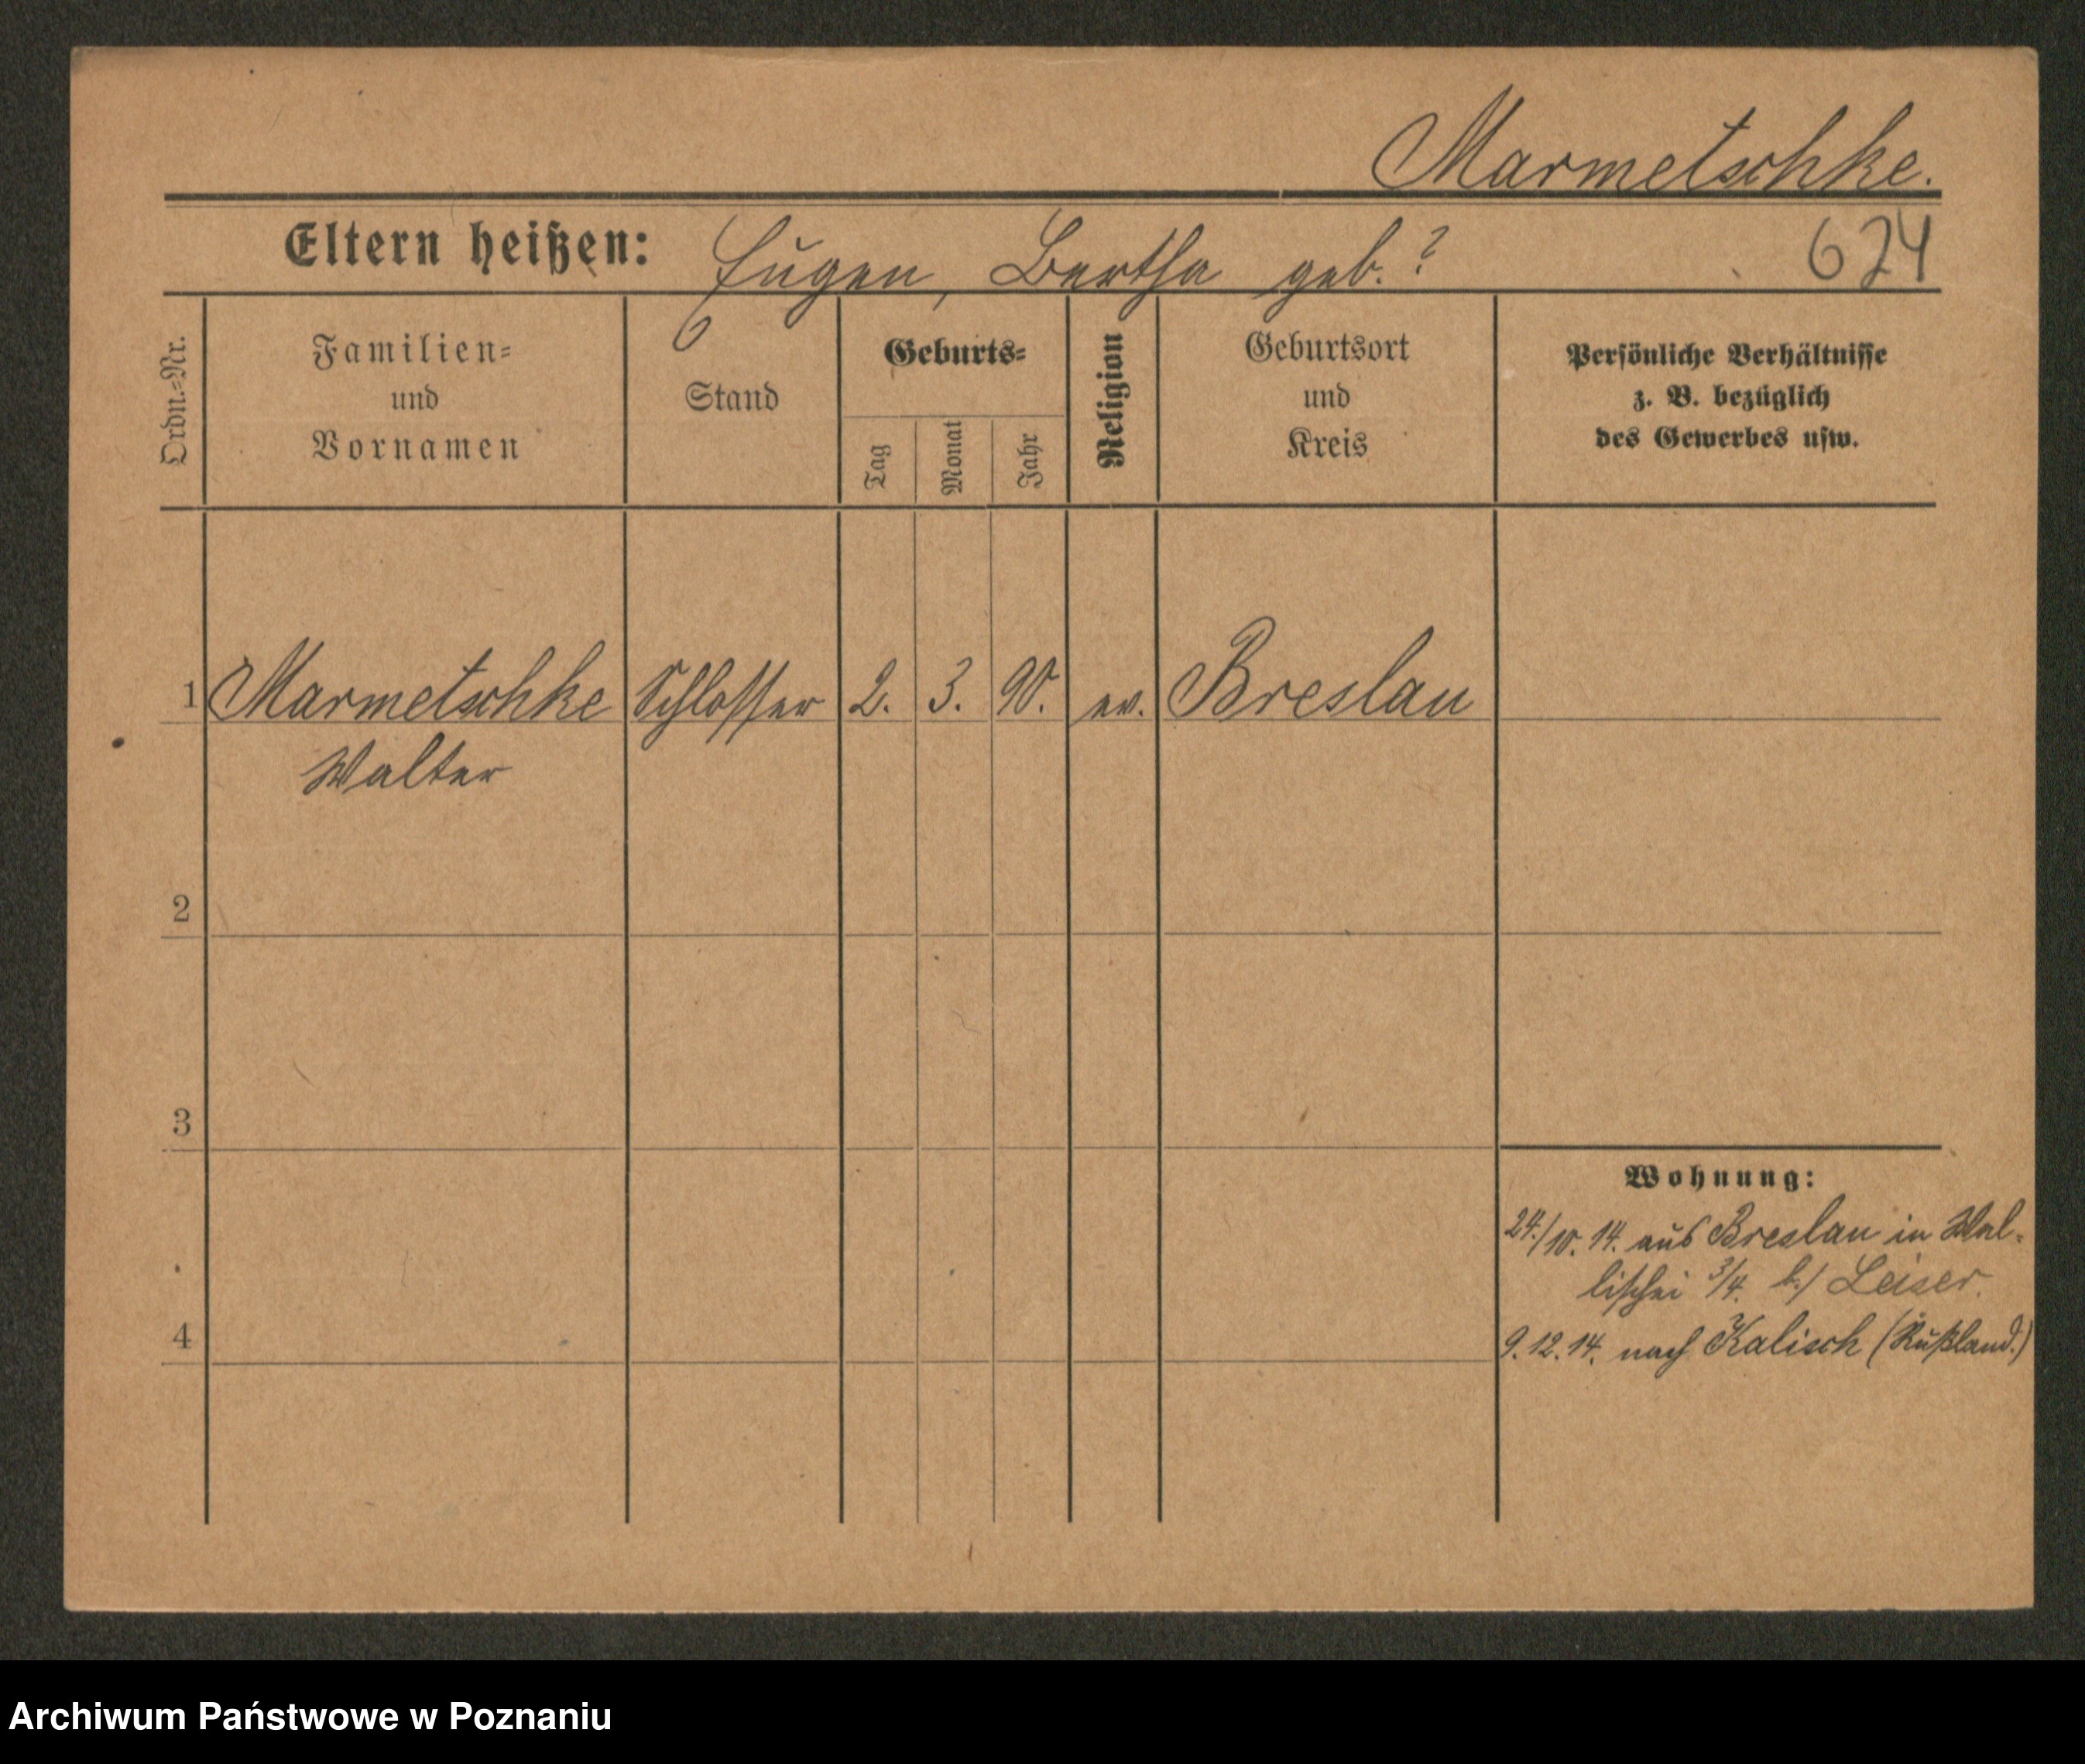 Marmetschke.
Eltern heißen: Eugen, Bertha geb. ?
624
Ordn.-Nr.
Familien-
und
Vornamen
Stand
Geburts-
Tag
Monat
Jahr
Religion
Geburtsort
und
Kreis
Persönliche Verhältnisse
z. B. bezüglich
des Gewerbes usw.
1 Marmetschke Schlosser 2. 3. 90. ev. Breslau
Walter
2
3
Wohnung:
24./10. 14. aus Breslau in Wal-
lischei 3/4. b./ Leiser.
4
9.12.14. nach Kalisch (Rußland.)
Archiwum Państwowe w Poznaniu